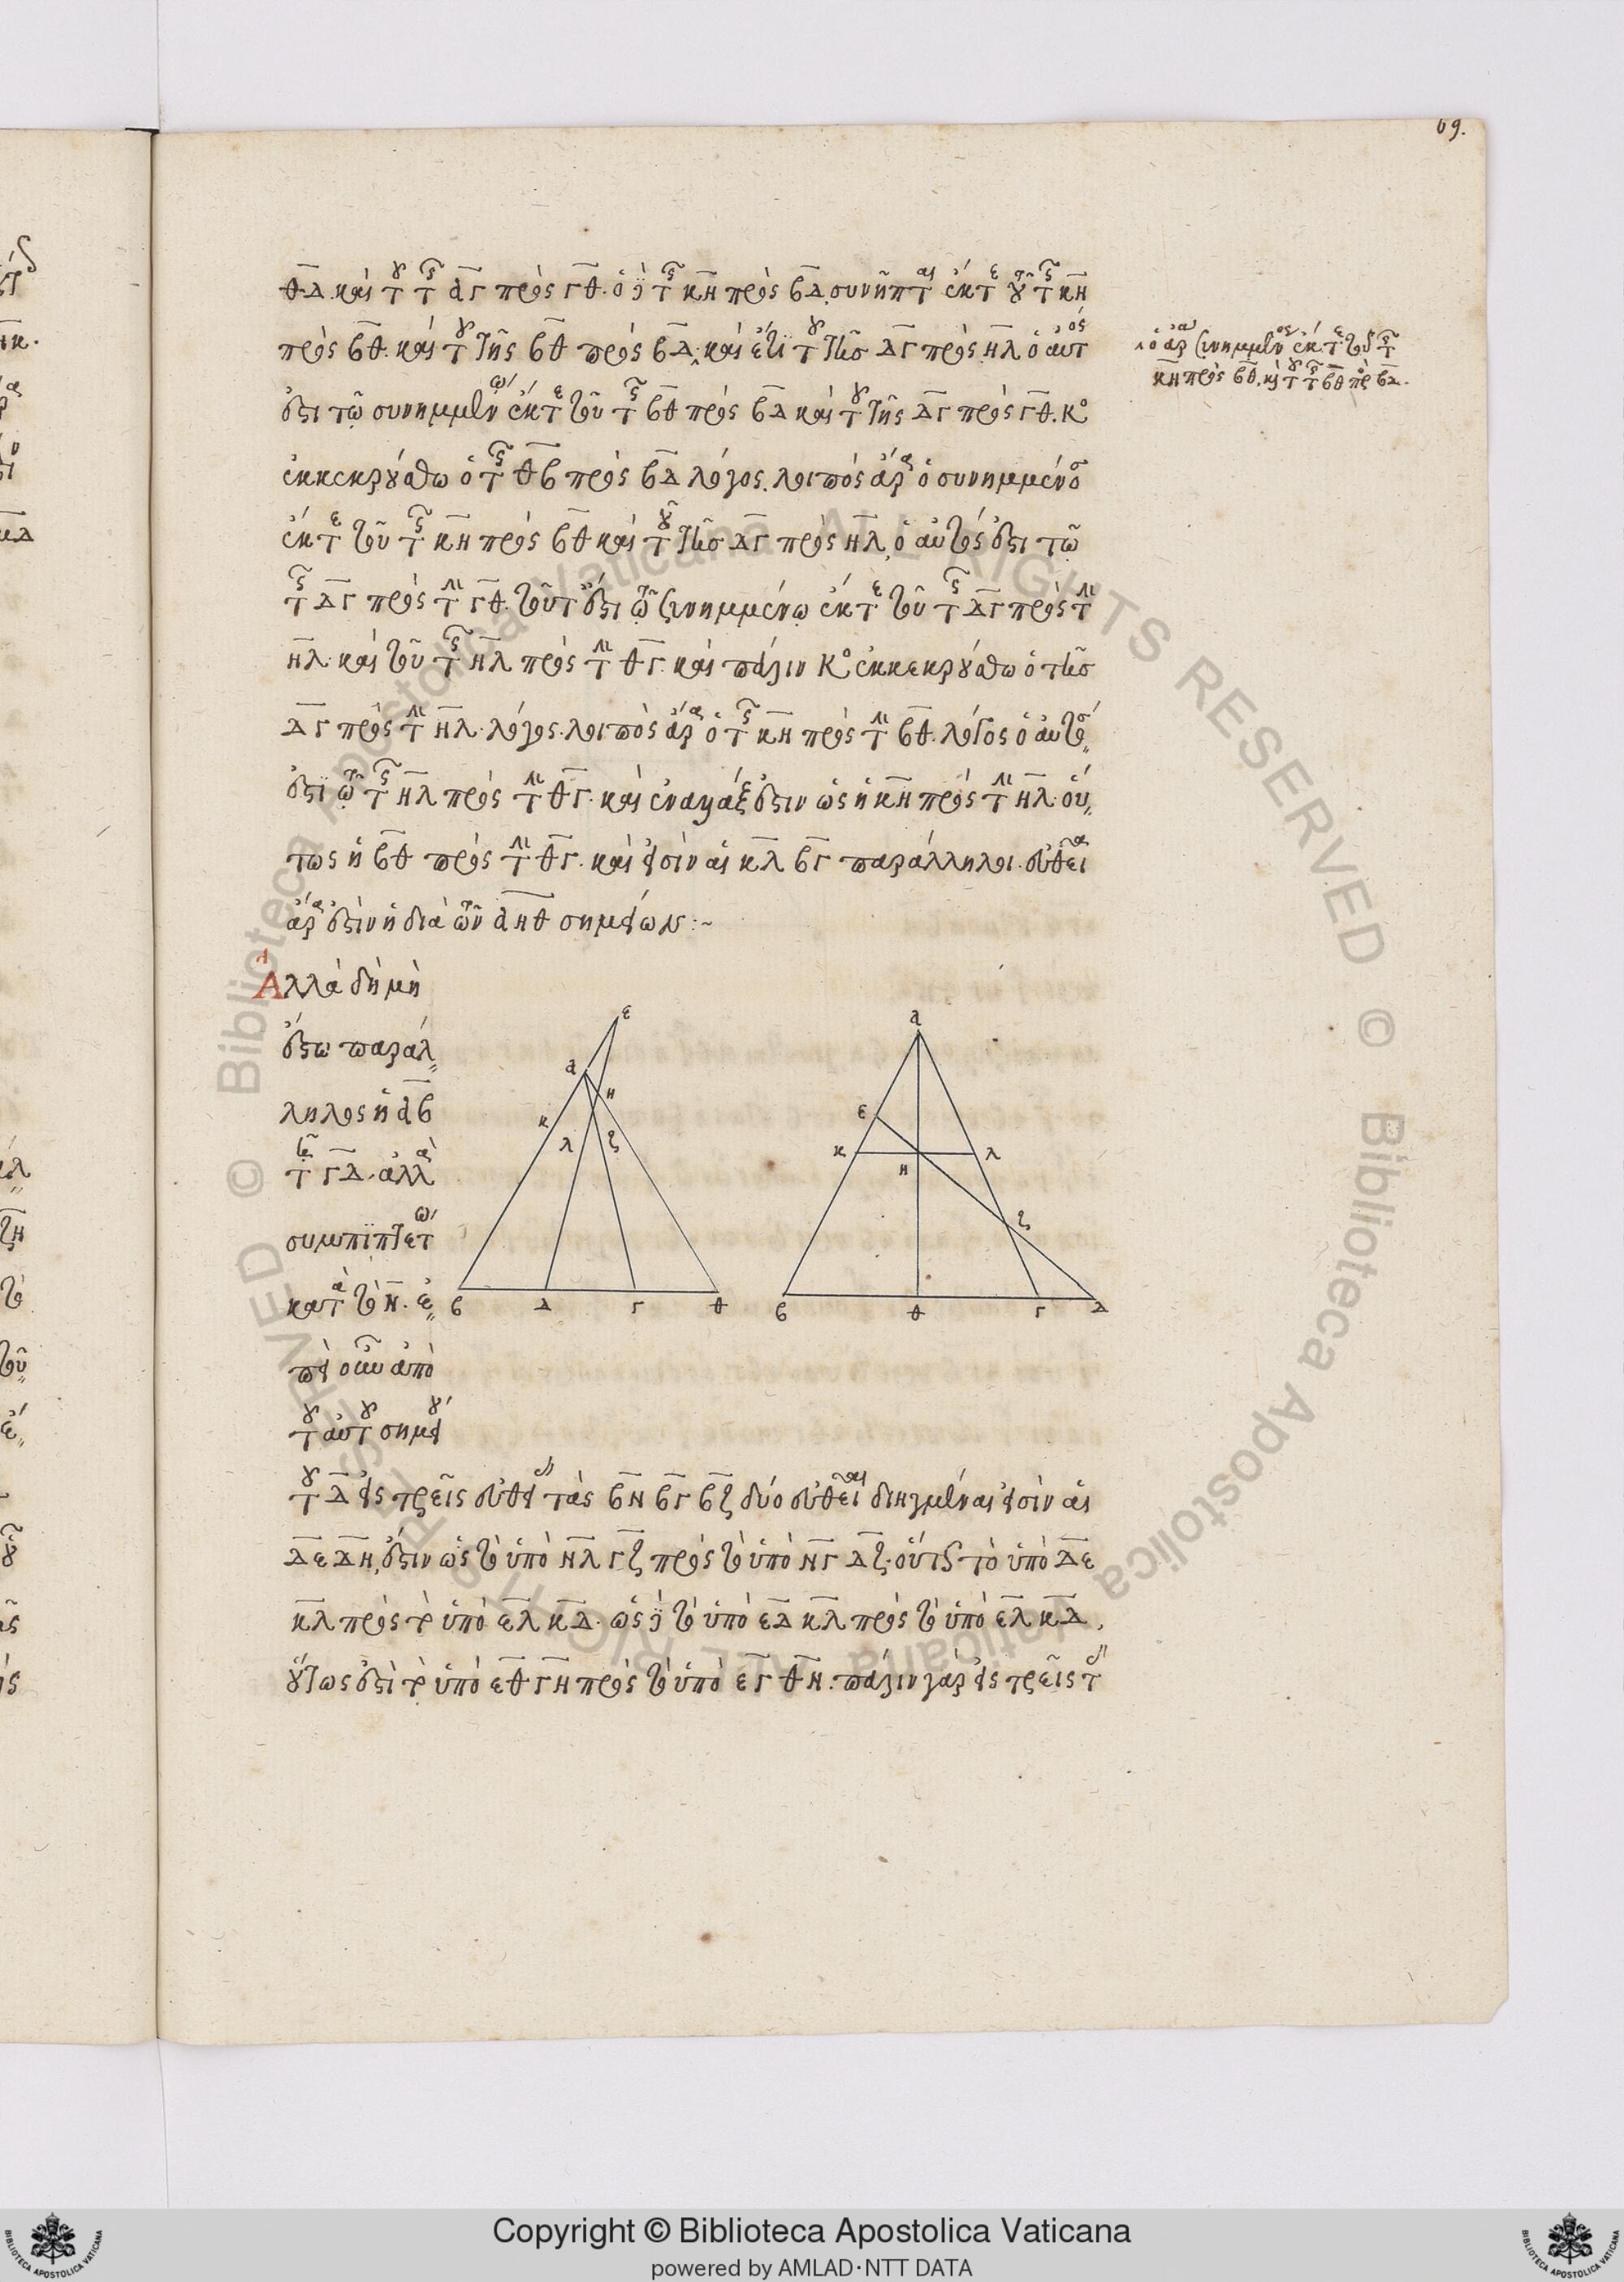 69.
ΘΔ. καὶ τοῦ τῆς ΔΓ πρὸς ΓΘ. ὁ δὲ τῆς ΚΗ πρὸς ΒΔ, συνῆπται ἔκ τε τοῦ τῆς ΚΗ
πρὸς ΒΘ. καὶ τοῦ τῆς ΒΘ πρὸς ΒΔ· καὶ ἔτι τοῦ τῆς ΔΓ πρὸς ΗΛ ὁ αὐτός
ἐστι τῷ συνημμένῳ ἔκ τε τοῦ τῆς ΒΘ πρὸς ΒΔ καὶ τοῦ τῆς ΔΓ πρὸς ΓΘ. Κο
ἐκκεκρούσθω ὁ τῆς ΘΒ πρὸς ΒΔ λόγος. λοιπὸς ἄρα ὁ συνημμένος
ἔκ τε τοῦ τῆς ΚΗ πρὸς ΒΘ καὶ τοῦ τῆς ΔΓ πρὸς ΗΛ, ὁ αὐτός ἐστι τῷ
τῆς ΔΓ πρὸς τὴν ΓΘ. τουτέστι τῷ συνημμένῳ ἔκ τε τοῦ τῆς ΔΓ πρὸς τὴν
ΗΛ· καὶ τοῦ τῆς ΗΛ πρὸς τὴν ΘΓ. καὶ πάλιν Κο ἐκκεκρούσθω ὁ τῆς
ΔΓ πρὸς τὴν ΗΛ· λόγος. λοιπὸς ἄρα ὁ τῆς ΚΗ πρὸς τὴν ΒΘ. λόγος ὁ αὐτός
ἐστι τῷ τῆς ΗΛ πρὸς τὴν ΘΓ. καὶ ἐναλλάξ ἐστιν ὡς ἡ ΚΗ πρὸς τὴν ΗΛ· οὕ
τως ἡ ΒΘ πρὸς τὴν ΘΓ. καὶ εἰσὶν αἱ ΚΛ ΒΓ παράλληλοι. εὐθεῖα
ἄρα ἐστὶν ἡ διὰ τῶν ΑΗΘ σημείων :~
ὁ ἄρα συνημμένος ἔκ τε τοῦ τῆς
ΚΗ πρὸς ΒΘ, καὶ τοῦ τῆς ΒΘ πρὸς ΒΔ.
Ἀλλὰ δὴ μὴ
ἔστω παράλ
ληλος ἡ ΑΒ
τῇ ΓΔ. ἀλλὰ
συμπιπτέτω
κατὰ τὸ Ν. ἐ
πεὶ οὖν ἀπὸ
τοῦ αὐτοῦ σημείου
ε
α
η
κ
λ
ζ
β
Δ
Γ
θ
α
ε
κ
λ
η
ζ
β
θ
Γ
Δ
τοῦ Δ εἰς τρεῖς εὐθείας τὰς ΒΝ ΒΓ ΒΖ δύο εὐθεῖαι διηγμέναι εἰσὶν αἱ
ΔΕ ΔΗ, ἔστιν ὡς τὸ ὑπὸ ΝΛ ΓΖ πρὸς τὸ ὑπὸ ΝΓ ΔΖ· οὕτως τὸ ὑπὸ ΔΕ
ΚΛ πρὸς τὸ ὑπὸ ΕΛ ΚΔ. ὡς δὲ τὸ ὑπὸ ΕΔ ΚΛ πρὸς τὸ ὑπὸ ΕΛ ΚΔ,
οὕτως ἐστὶ τὸ ὑπὸ ΕΘ ΓΗ πρὸς τὸ ὑπὸ ΕΓ ΘΗ. πάλιν γὰρ εἰς τρεῖς τὰς
Copyright © Biblioteca Apostolica Vaticana
powered by AMLAD·NTT DATA